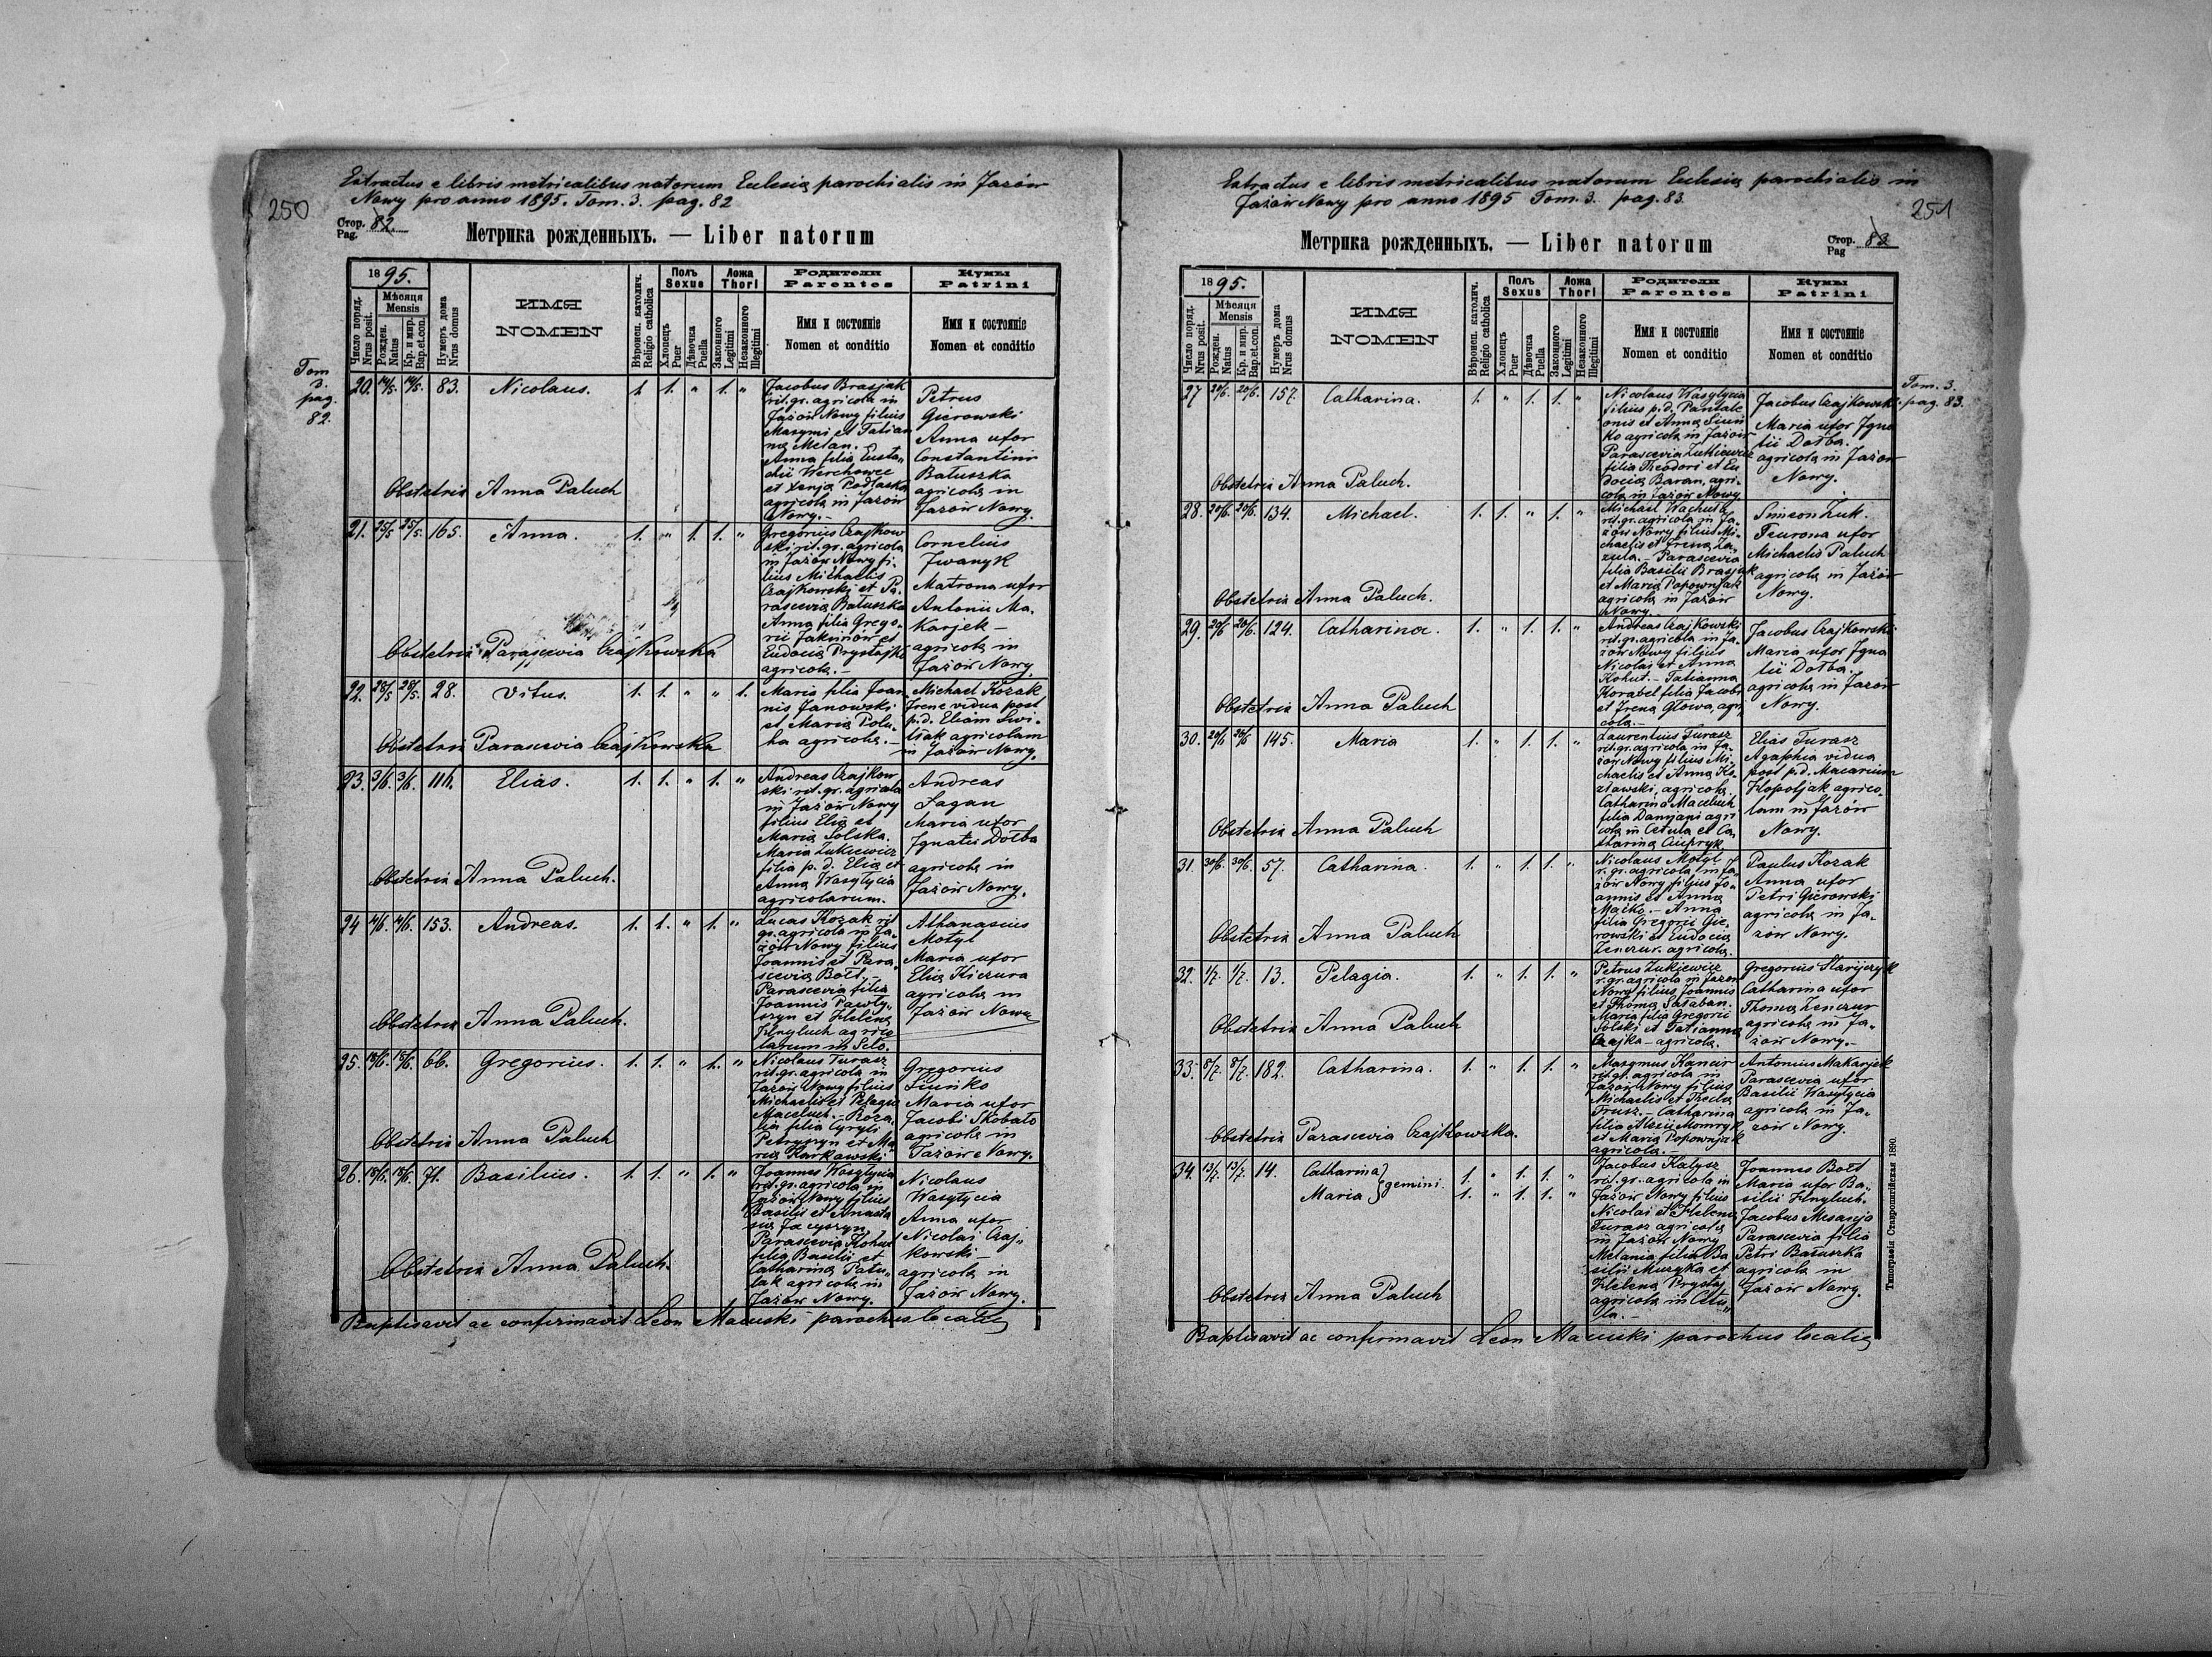 Extractus e libris metricalibus natorum Eclesiæ parochialis in Jazów
Nowy pro anno 1895. Tom. 3. pag. 82
250
Стор. Pag. 82
Метрика рожденныхъ. — Liber natorum
1895.
Число поряд. Nrus posit.
Мѣсяця Mensis
Рожден. Natus
Кр. и мир. Bap. et con.
Нумеръ дома Nrus domus
ИМЯ
NOMEN
Вѣроисп. католич. Religio catholica
Полъ Sexus
Хлопецъ Puer
Дѣвочка Puella
Ложа Thori
Законного Legitimi
Незаконного Illegitimi
Родители Parentes
Имя и состоянiе
Nomen et conditio
Кумы Patrini
Имя и состоянiе
Nomen et conditio
Tom
3.
pag.
82.
20. 14/5. 14/5. 83. Nicolaus. 1. 1. " 1. "
Jacobus Brasjak
rit. gr. agricola in
Jazów Nowy filius
Maxymi et Tatian
næ Melan.
Anna filia Eusta„
chii Werchowec
et Xenja Podlaska
agricola in Jazów
Nowy. –
Petrus
Gierowski
Anna uxor
Constantini
Batuszka
agricola in
Jazów Nowy.
Obstetrix Anna Paluch
21. 25/5. 25/5. 165. Anna. 1. " 1. 1. "
Gregorius Czajkow
ski rit. gr. agricola
in Jazów Nowy fi„
lius Michaelis
Czajkowski et Pa„
rascevia Batuszka
Anna filia Grego„
rii Jakimów et
Eudocia Prystajko
agricola. –
Cornelius
Iwanyk
Matrona uxor
Antonii Ma„
karjek –
agricola in
Jazów Nowy.
Obstetrix Parascevia Czajkowska
22. 28/5 28/5. 28. Vitus. 1. 1. " " 1.
Maria filia Joan
nis Janowski
et Maria Polu„
ha agricola. –
Michael Kozak
Irene vidua post
p. d. Eliam Swi„
tjak agricolam
in Jazów Nowy.
Obstetrix Parascevia Czajkowska
23. 3/6. 3/6. 116. Elias. 1. 1. " 1. "
Andreas Czajkow
ski rit. gr. agricola
in Jazów Nowy
filius Elia et
Maria Solska.
Maria Zukiewicz
filia p. d. Elia et
Anna Wasylycia
agricolarum.
Andreas
Lagan
Maria uxor
Ignatii Dolba
agricola in
Jazów Nowy.
Obstetrix Anna Paluch.
24 4/6. 4/6. 153. Andreas. 1. 1. " 1. "
Lucas Kozak rit
gr. agricola in Ja„
zów Nowy filius
Joannis et Para„
scevia Bolt. –
Parascevia filia
Joannis Pawly„
szyn et Helena
Hnyluch agrico
larum in Selo.
Athanasius
Motyl
Maria uxor
Elia Kiczura
agricola in
Jazów Nowy
Obstetrix Anna Paluch.
25. 15/6. 15/6. 66. Gregorius. 1. 1. " 1. "
Nicolaus Turasz
rit. gr. agricola in
Jazów Nowy filius
Michaelis et Pelagia
Maceluch. – Roza„
lia filia Cyryli
Petryszyn et Ma
ria Karkawski
Gregorius
Siuńko
Maria uxor
Jacobi Skobalo
agricola in
Jazów Nowy.
Obstetrix Anna Paluch
26. 18/6. 18/6. 71. Basilius. 1. 1. " 1. "
Joannes Wasylycia
rit. gr. agricola in
Jazów Nowy filius
Basilii et Anasta
sia Jacyszyn
Parascevia Kohut
filia Basilii et
Catharina Patu„
lak agricola in
Jazów Nowy.
Nicolaus
Wasylycia
Anna uxor
Nicolai Czaj„
kowski –
agricola in
Jazów Nowy.
Obstetrix Anna Paluch.
Baptisavit ac confirmavit Leon Macuski parochus localis
Extractus e libris metricalibus natorum Eclesiæ parochialis in
Jazów Nowy pro anno 1895 Tom. 3. pag. 83.
251
Метрика рожденныхъ. — Liber natorum
Стор. Pag 83
1895.
Число поряд. Nrus posit.
Мѣсяця Mensis
Рожден. Natus
Кр. и мир. Bap. et con.
Нумеръ дома Nrus domus
ИМЯ
NOMEN
Вѣроисп. католич. Religio catholica
Полъ Sexus
Хлопецъ Puer
Дѣвочка Puella
Ложа Thori
Законного Legitimi
Незаконного Illegitimi
Родители Parentes
Имя и состоянiе
Nomen et conditio
Кумы Patrini
Имя и состоянiе
Nomen et conditio
Tom. 3.
pag. 83.
27 20/6. 20/6. 157. Catharina. 1. " 1. 1. "
Nicolaus Wasylycia
filius p. d. Pantale
onis et Anna Siuń
ko agricola in Jazów
Parascevia Zukiewicz
filia Theodori et Eu
docia Baran, agri„
cola in Jazów Nowy.
Jacobus Czajkowski
Maria uxor Igna
tii Dolba.
agricola in Jazów
Nowy.
Obstetrix Anna Paluch.
28. 20/6. 20/6. 134. Michael. 1. 1. " 1. "
Michael Wachula
rit. gr. agricola in Ja„
zów Nowy filius Mi„
chaelis et Irena Za„
zula. – Parascevia
filia Basilii Brasjak
et Maria Popownjak
agricola in Jazów
Nowy.
Simeon Zuk.
Feurona uxor
Michaelis Paluch
agricola in Jazów
Nowy.
Obstetrix Anna Paluch.
29. 20/6 20/6. 124. Catharina. 1. " 1. 1. "
Andreas Czajkowski
rit. gr. agricola in Ja„
zów Nowy filius
Nicolai et Anna
Kohut. – Tatianna
Korabel filia Jacobi
et Irena Glowa, agri„
cola. –
Jacobus Czajkowski
Maria uxor Igna
tii Dolba.
agricola in Jazów
Nowy.
Obstetrix Anna Paluch
30. 26/6 26/6 145. Maria 1. " 1. 1. "
Laurentius Turasz
rit. gr. agricola in Ja„
zów Nowy filius Mi„
chaelis et Anna Ko„
zlawski, agricola.
Catharina Maceluch
filia Damjani agri
cola in Cetula et Ca„
tharina Ciupryk.
Elias Turasz
Agaphia vidua
post p. d. Macarium
Kopotjak agrico„
lam in Jazów
Nowy.
Obstetrix Anna Paluch
31. 30/6. 30/6. 57. Catharina. 1. " 1. 1. "
Nicolaus Motyl
r. gr. agricola in Ja„
zów Nowy filius Jo„
annis et Anna
Maćko. – Anna
filia Gregorii Gie„
rowski et Eudocia
Zenczur. agricola.
Paulus Kozak
Anna uxor
Petri Gierowski
agricola in Ja„
zów Nowy.
Obstetrix Anna Paluch
32. 1/7. 1/7. 13. Pelagia. 1. " 1. 1. "
Petrus Zukiewicz
r. gr. agricola in Jazów
Nowy filius Joannis
et Thoma Salaban.
Maria filia Gregorii
Solski et Tatianna
Czajka – agricola.
Gregorius Staryczyk
Catharina uxor
Thoma Zenczur
agricola in Ja„
zów Nowy. –
Obstetrix Anna Paluch
33. 8/7. 8/7. 182. Catharina. 1. " 1. 1. "
Maxymus Kancir
rit. gr. agricola in
Jazów Nowy filius
Michaelis et Thecla
Trusz. – Catharina
filia Alexii Momryk
et Maria Popownjak
agricola. –
Antonius Makarjek
Parascevia uxor
Basilii Wasylycia
agricola in Ja„
zów Nowy.
Obstetrix Parascevia Czajkowska.
34. 13/7. 13/7. 14. Catharina } gemini. 1. " 1. 1. "
Maria 1. " 1. 1. "
Jacobus Kalysz
rit. gr. agricola in
Jazów Nowy filius
Nicolai et Helena
Turasz agricola
in Jazów Nowy
Melania filia Ba
silii Muzyka et
Helena Prystaj
agricola in Cetu„
la. –
Joannes Bolt
Maria uxor Ba„
silii Hnyluch.
Jacobus Mesarejo
Parascevia filia
Petri Batuszka
agricola in
Jazów Nowy.
Obstetrix Anna Paluch
Baptisavit ac confirmavit Leon Macuski parochus localis
Типографія Ставропигійская 1890.